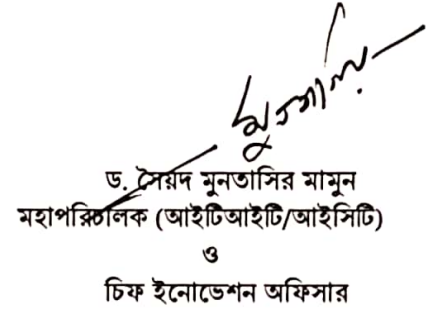 মুনতাসির
ড. সৈয়দ মুনতাসির মামুন
মহাপরিচালক (আইটিআইটি/আইসিটি)
ও
চিফ ইনোভেশন অফিসার